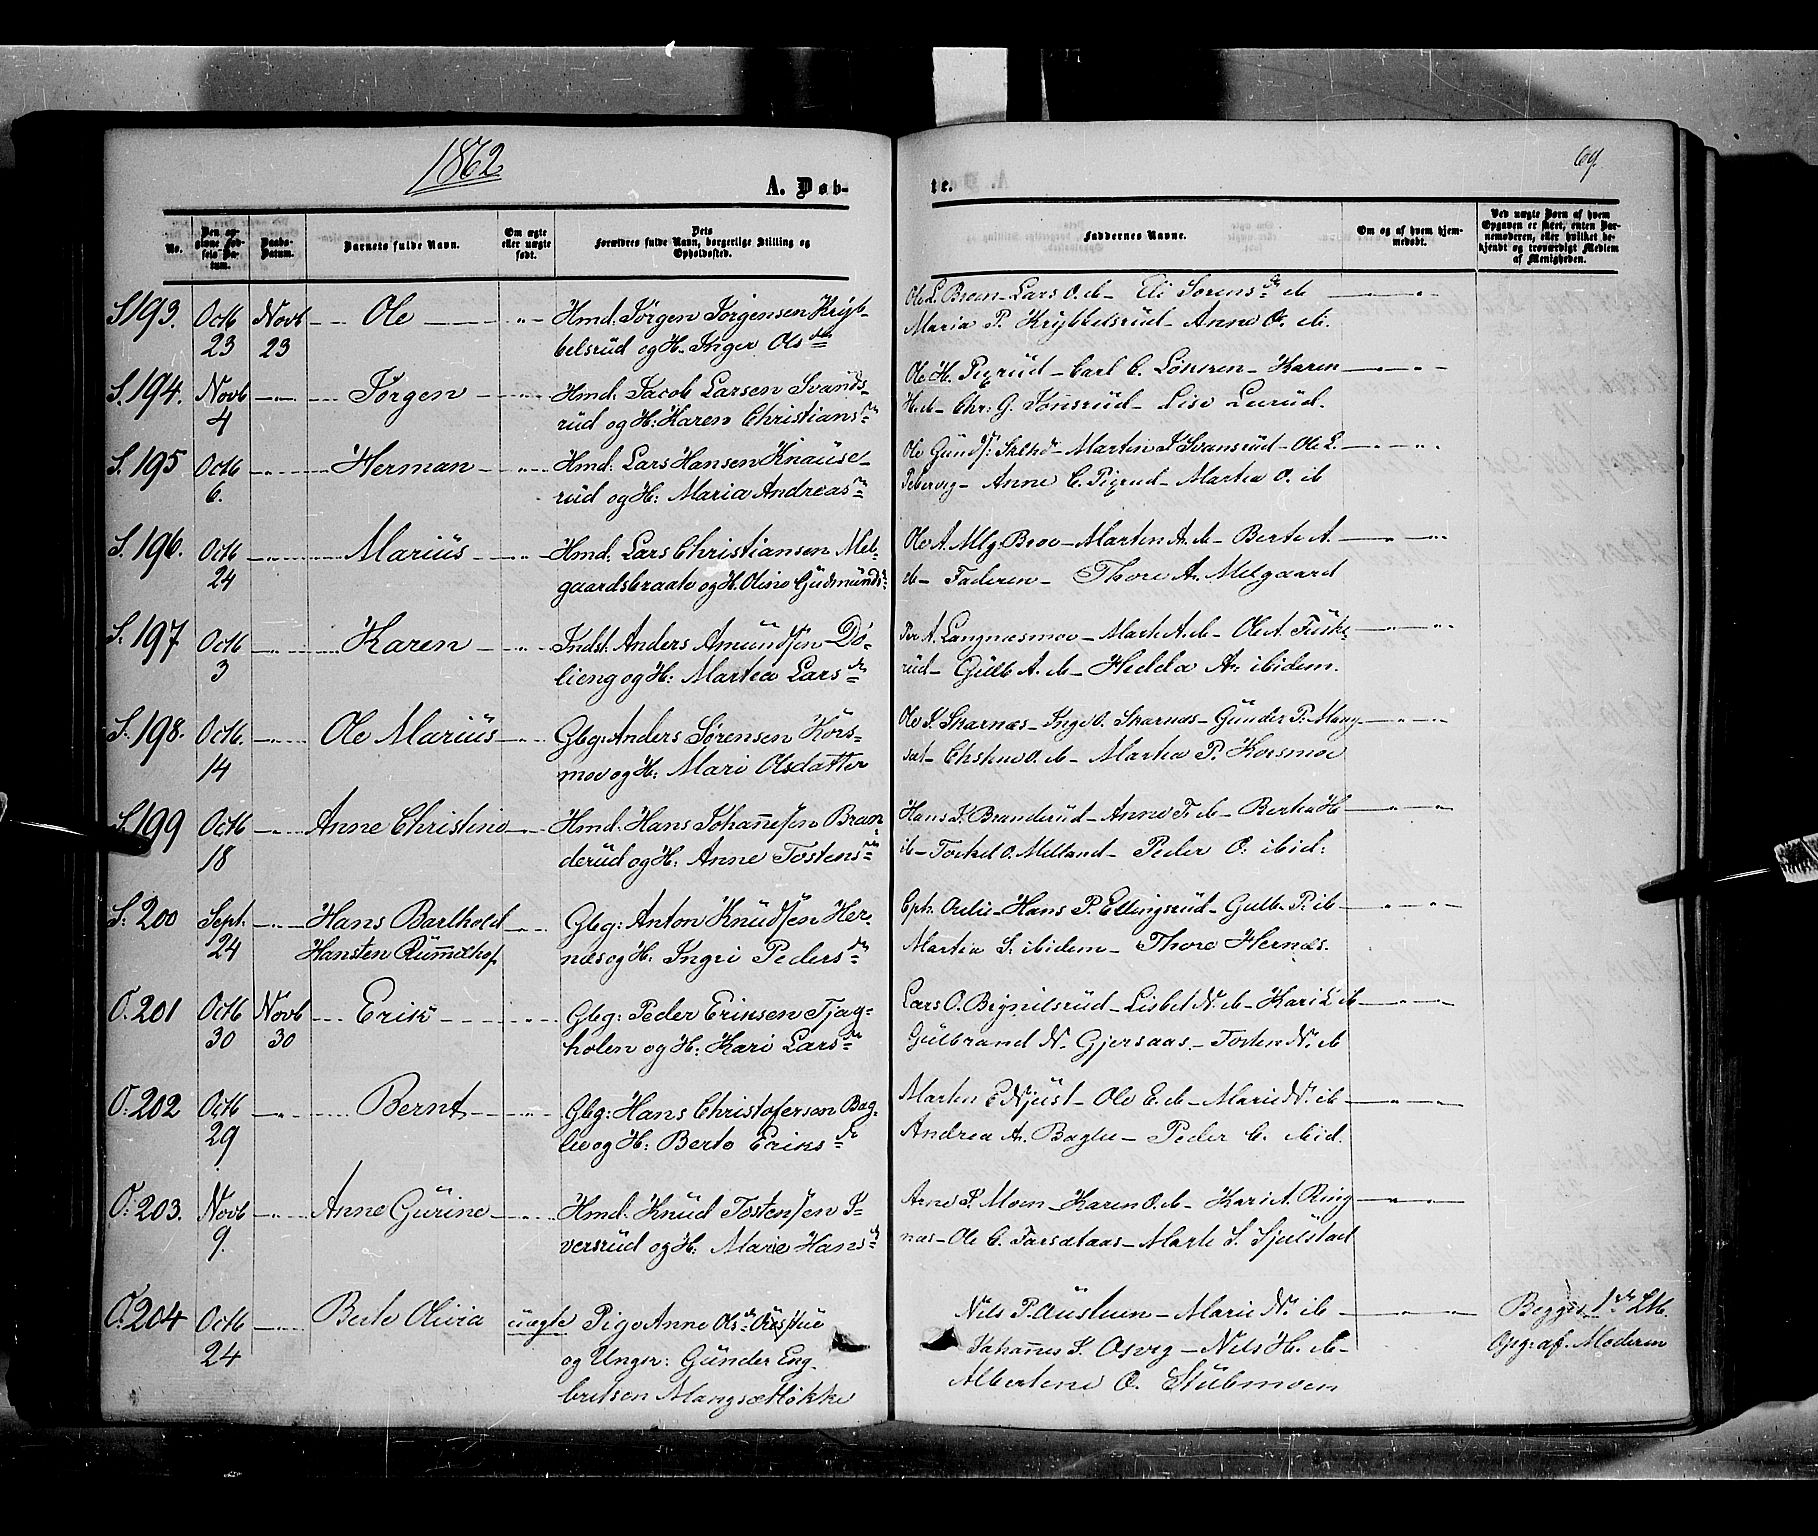 1862
A. Døb-
te.
69.
No.
Den op-
givne Fød-
sels Da-
tum.
Daabs-
Datum.
Barnets fulde Navn.
Om ægte
eller uægte
født.
Dets
Forældres fulde Navn, borgerlige Stilling og
Opholdssted.
Faddernes Navne.
Om og af hvem hjem-
medøbt.
Ved uægte Børn af hvem
Opgaven er skeet, enten Bar-
nemoderen, eller hvilket be-
kjendt og troværdigt Medlem
af Menigheden.
S. 193. Octb 23 Novb 23 Ole Hmd. Jørgen Jørgensen Kryb-
belsrud og H. Inger Olsdr
Ole L. Broen - Lars O. ib - Eli Sørensdr ib
Maria P. Krybbelsrud - Anne O. ib.
S. 194. Novb 4 Jørgen Hmd. Jacob Larsen Svands-
rud og H: Karen Christiansdr
Ole H. Pigrud - Carl C. - Karen
H. ib - Chr: G. Tonsrud - Lise Lerud.
S. 195 Octb 6. Herman Hmd: Lars Hansen Knause-
rud og H: Maria Andreasdr
Ole - Martin J. Svansrud - Ole L.
Pebervig - Anne C. Pigrud - Martea O. ib
S. 196. Octb 24 Marius Hmd: Lars Christiansen Mel-
gaardsbraate og H. Oline Gudmundsdr
Ole A. Mlg. Broe - Marten A. ib - Berte A.
ib - Faderen - Thore A. Melgaard
S. 197 Octb 3 Karen Indst. Anders Amundsen Dø-
lieng og H: Martea Larsdr
Per A. Langnæsmoe - Marte A. ib - Ole A. Fuske-
rud - Gulb A. ib - Hedda A. ibidem.
S. 198. Octb. 14 Ole Marius Gbg: Anders Sørensen Kors-
moe og H: Mari Olsdatter
Ole S. Skarnæs - Inge O. Skarnæs - Gunder P. Mang-
sæt - O. ib - Martea P. Korsmoe
S. 199 Octb 18 Anne Christine Hmd: Hans Johannesen Bran-
derud og H: Anne Tostensdr
Hans J. Branderud - Anne T. ib - Bertea H
ib - Torkel O. Melland - Peder O. ibid:
S. 200 Sept. 24 Hans Barthold
Hansten Rummelhof Gbg: Anton Knudsen Her-
næs og H. Ingri Pedersdr
Cpt. - Hans P. Ellingsrud - Gulb. P. ib
Martea S. ibidem - Thore Hernæs.
O. 201 Octb 30 Novb 30 Erik Gbg: Peder Eriksen Tjag-
holen og H: Kari Larsdr
Lars O. Brynilsrud - Lisbet N. ib - Kari L ib
Gulbrand N. Gjersaas - Tosten N. ib
O. 202 Octb 29 Bernt Gbg: Hans Christofersen Bag-
lie og H: Berte Eriksdr
Marten E Njust - Ole E. ib - Marie N. ib -
Andrea A. Baglie - Peder C. ibid.
O. 203. Novb 9. Anne Gurine Hmd. Knud Tostensen I-
versrud og H: Marie Hansdr
Arne P. Moen - Karen O. ib - Kari A. Ring-
næs - Ole C. - Marte S. Sjulstad
O. 204 Octb 24 Berte Olivia uægte Pige Anne Olsdr
og Ungkr: Gunder Eng-
bretsen Mangsætløkke
Nils P. Austeren - Marie N. ib
Johannes J. Osvig - Nils H. ib -
Albertine O. Stubmoen
Begges 1ste Ltb.
Opg: af Moderen